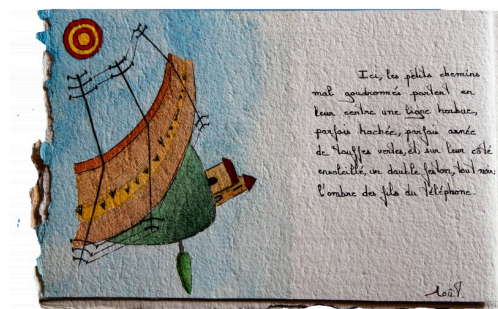 Ici, les petits chemins
mal goudronnés portent en
leur centre une ligne herbue,
parfois hachée, parfois ornée
de touffes vertes, et, sur leur côté
ensoleillé, un double feston, tout noir:
l'ombre des fils du téléphone.
Août.